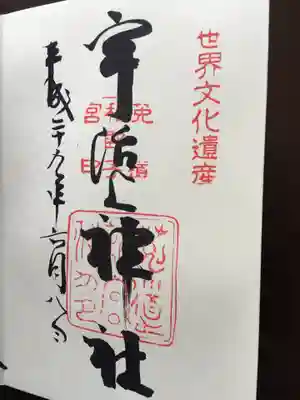 世界文化遺産
宇治上神社
平成二十九年六月八日